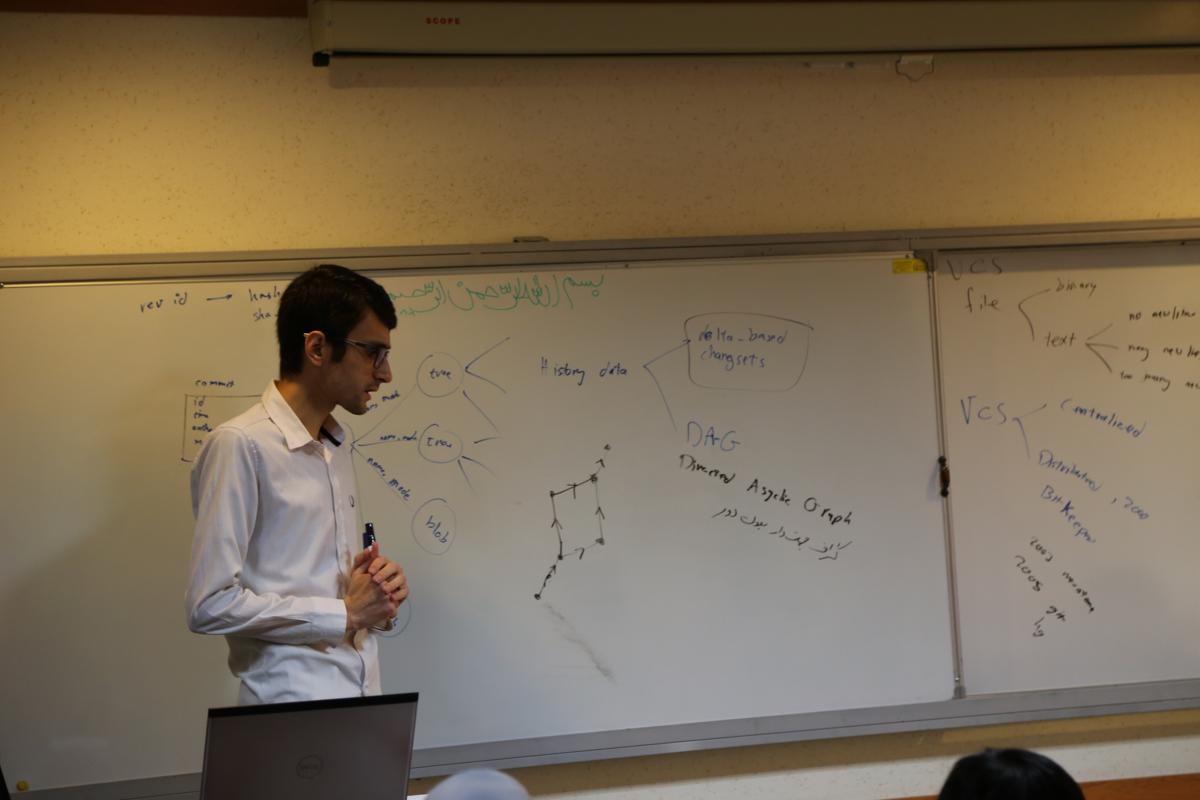 SCOPE
بسم الله الرحمن الرحیم
rev id → hash
sha
commit
id
tree
tree
blob
name, mode
name, mode
History data
delta-based
changsets
DAG
Directed Asyclic Graph
گراف جهت‌دار بدون دور
VCS
file
binary
text
no newline
many newline
too many
VCS
Centralized
Distributed, 2000
BitKeeper
2003 monotone
2005 git
hg
DELL